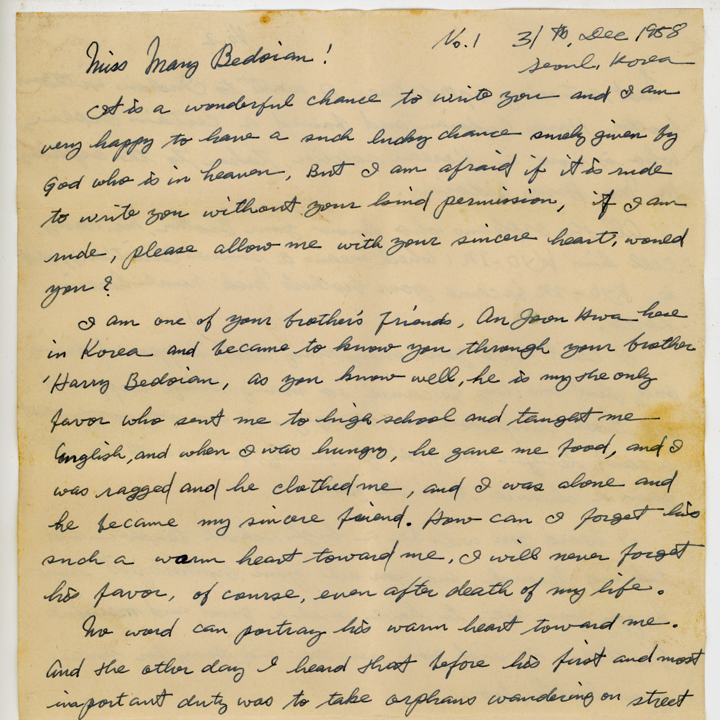 No. 1 31 th, Dec 1958
Miss Mary Bedoian!
Seoul, Korea
It is a wonderful chance to write you and I am
very happy to have a such lucky chance surely given by
God who is in heaven, But I am afraid if it is rude
to write you without your kind permission, if I am
rude, please allow me with your sincere heart, would
you?
I am one of your brother's friends, An Joon Hwa here
in Korea and became to know you through your brother
'Harry Bedoian, as you know well, he is my the only
favor who sent me to high school and taught me
English, and when I was hungry, he gave me food, and I
was ragged and he clothed me, and I was alone and
he became my sincere friend. How can I forget his
such a warm heart toward me, I will never forget
his favor, of course, even after death of my life.
No word can portray his warm heart toward me.
And the other day I heard that before his first and most
important duty was to take orphans wandering on street